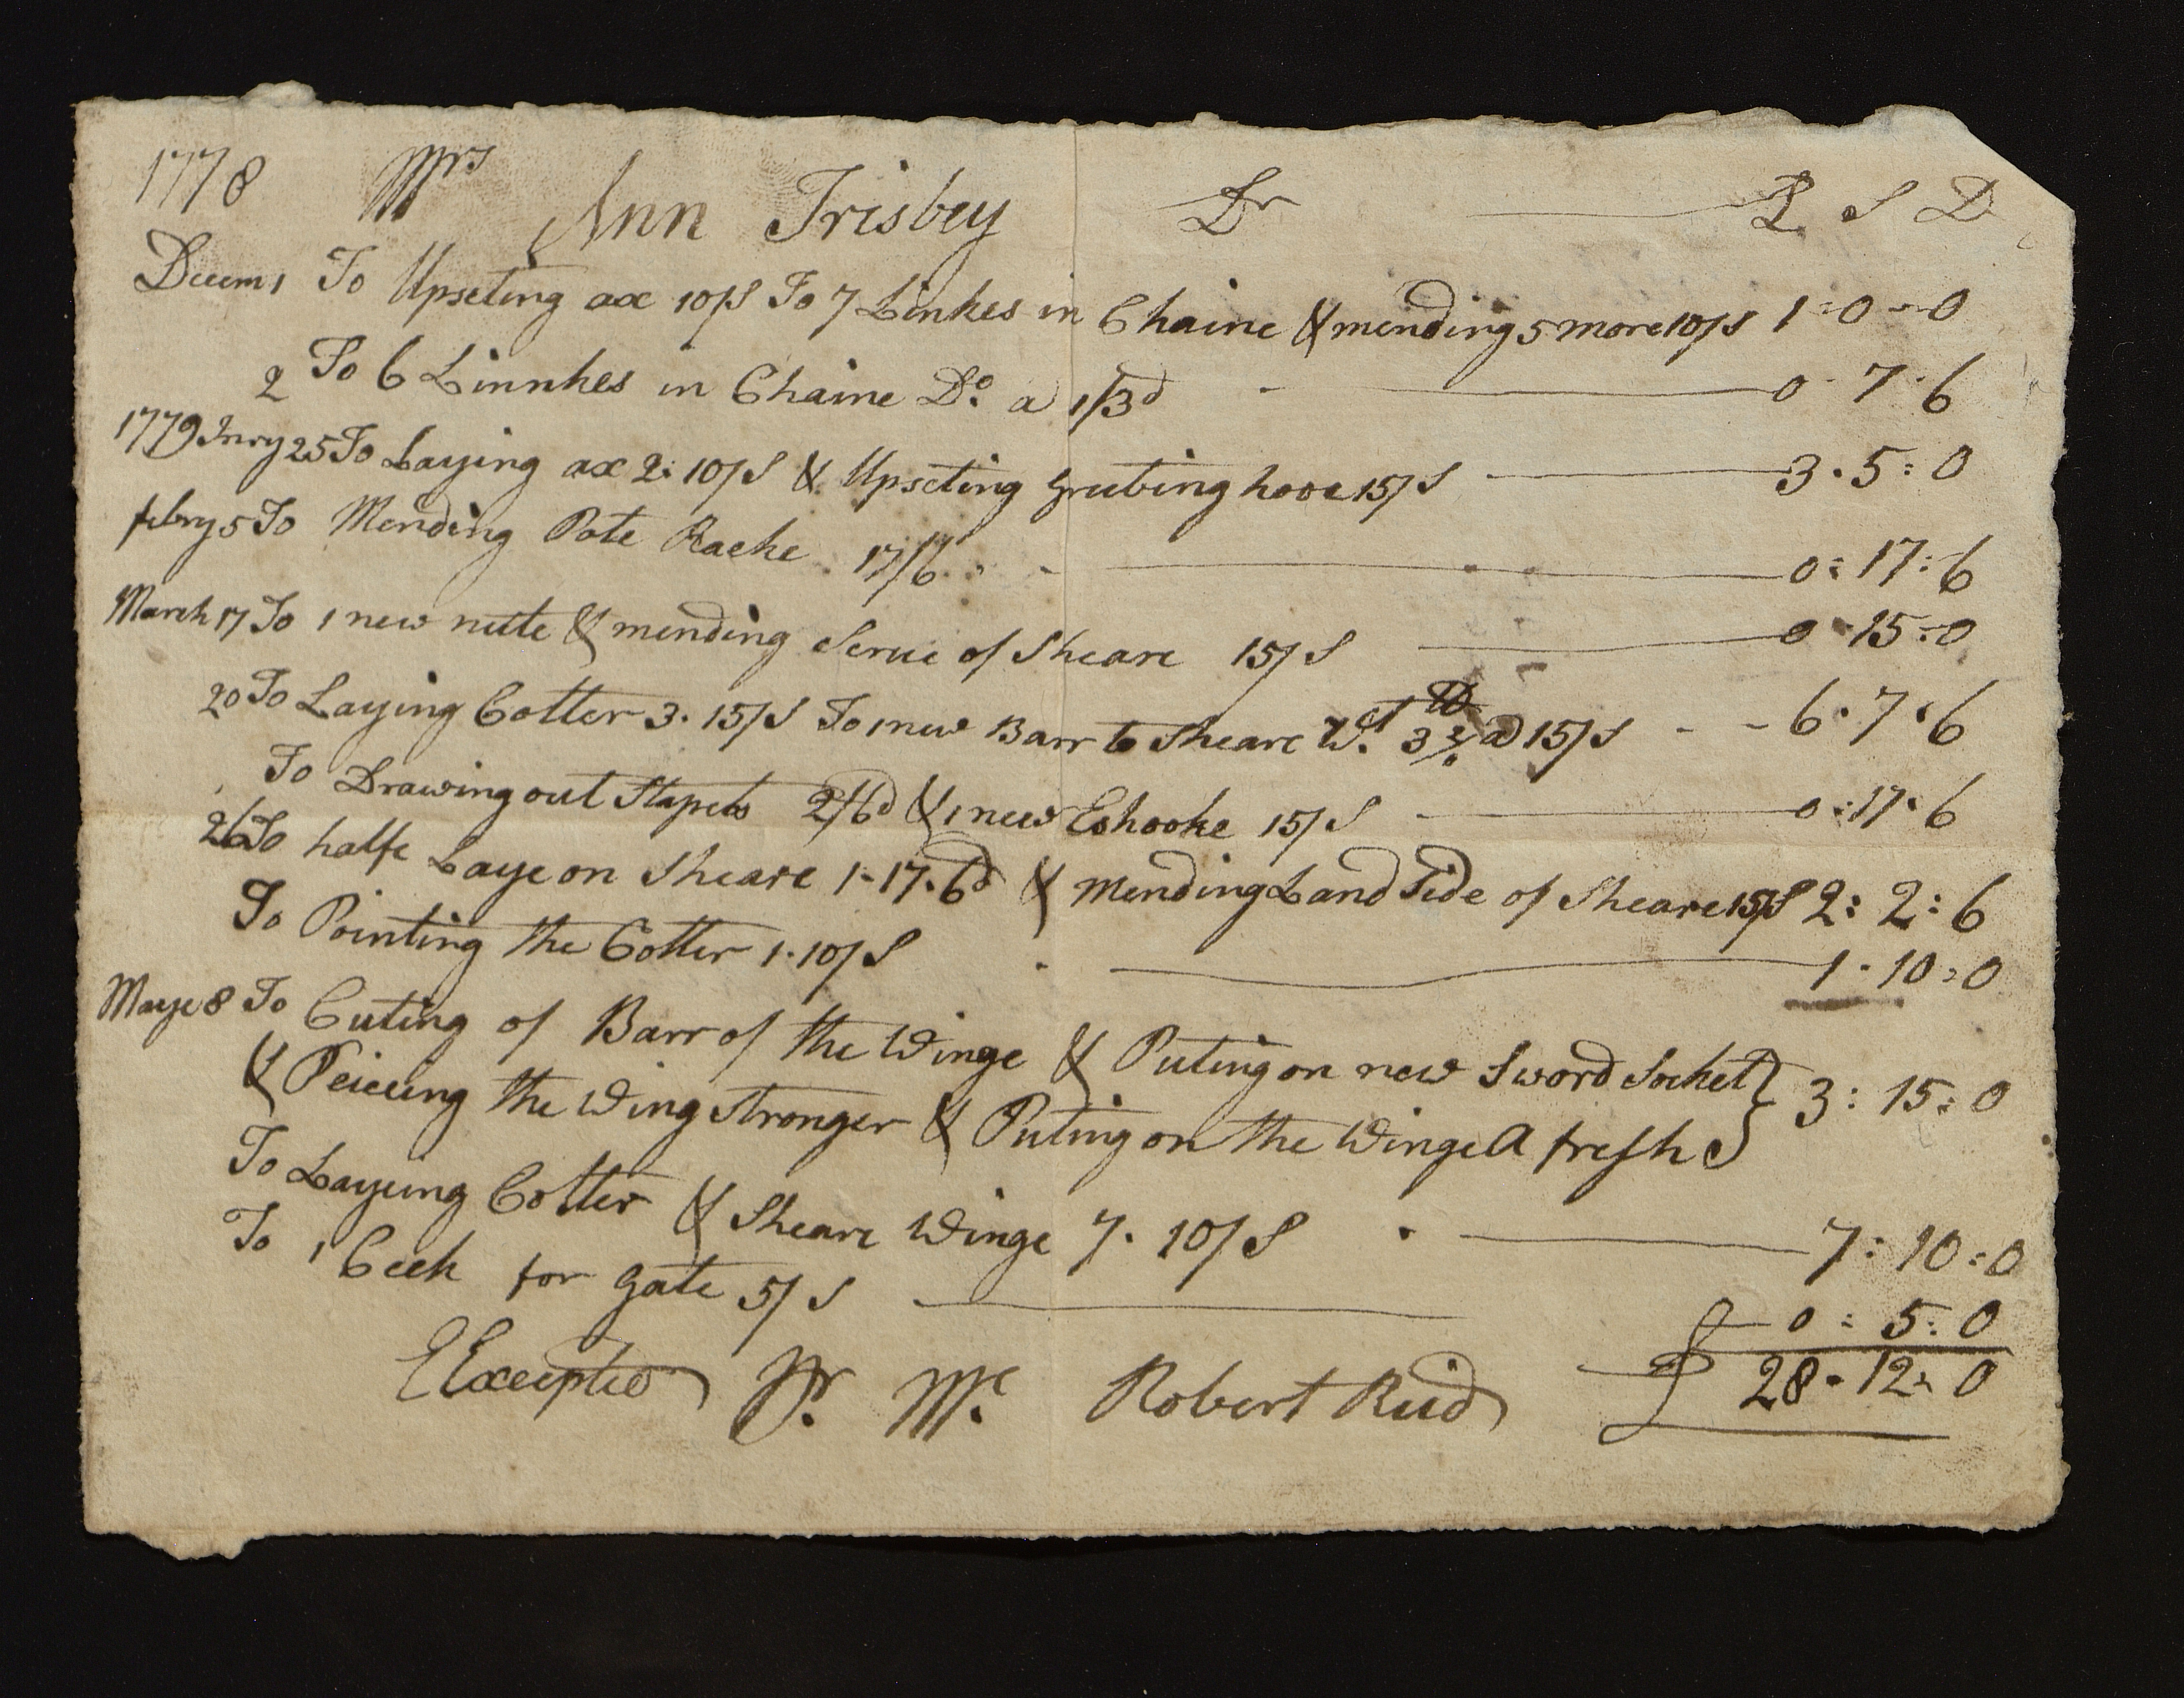 1778 Mrs Ann Frisby Dr L S D
Decem 1 To Upseting ax 10/S To 7 Linkes in Chaine & mending 5 more 10/S 1=0=0
2 To 6 Linnkes in Chaine Do. a 1/3d 0·7·6
1779 Jnry 25 To Laying ax 2:10/S & Upseting Grubing hooe 15/S 3·5:0
febry 5 To Mending Pote Racke 17/6 0:17:6
March 17 To 1 new nutte & mending Scrue of Sheare 15/S 0·15:0
20 To Laying Cotter 3·15/S To 1 new Barr to Sheare Wt. 3 1/2 a 15/S 6·7·6
To Drawing out Stapels 2/6d & 1 new Eshooke 15/S 0:17·6
26 To halfe Laye on Sheare 1-17·6d & Mending Land Side of Sheare 15/S 2:2:6
To Pointing the Cotter 1·10/S 1·10:0
Maye 8 To Cuting of Barr of the Winge & Puting on new Sword Socket
& Peiceing the Wing Stronger & Puting on the Winge A fresh 3:15:0
To Layeing Cotter & Sheare Winge 7·10/S 7:10:0
To 1 Ceek for Gate 5/S 0:5:0
EExcepted Pr. Me. Robert Reid £ 28·12·0